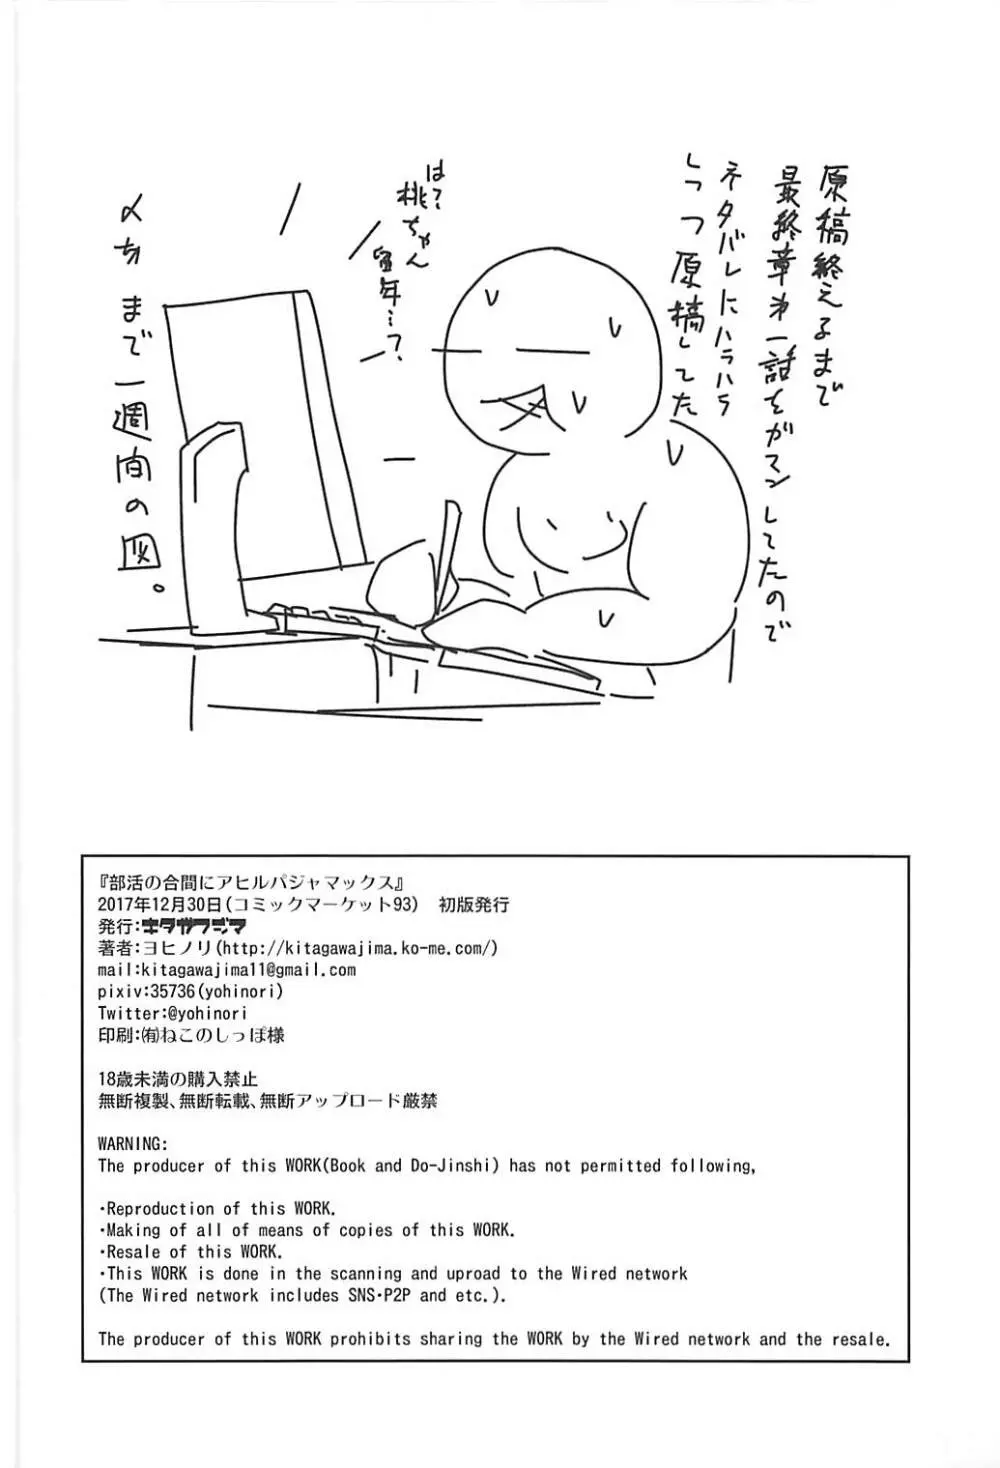 原稿終えるまで
最終章第一話をガマンしてたので
ネタバレにハラハラ
しつつ原稿してた
は?
桃ちゃん
留年…?
〆切まで一週間の図。
『部活の合間にアヒルパジャマックス』
2017年12月30日(コミックマーケット93) 初版発行
発行:キタガワジマ
著者:ヨヒノリ(http://kitagawajima.ko-me.com/)
mail:kitagawajima11@gmail.com
pixiv:35736(yohinori)
Twitter:@yohinori
印刷:㈲ねこのしっぽ様
18歳未満の購入禁止
無断複製、無断転載、無断アップロード厳禁
WARNING:
The producer of this WORK(Book and Do-Jinshi) has not permitted following,
・Reproduction of this WORK.
・Making of all of means of copies of this WORK.
・Resale of this WORK.
・This WORK is done in the scanning and uproad to the Wired network
(The Wired network includes SNS・P2P and etc.).
The producer of this WORK prohibits sharing the WORK by the Wired network and the resale.